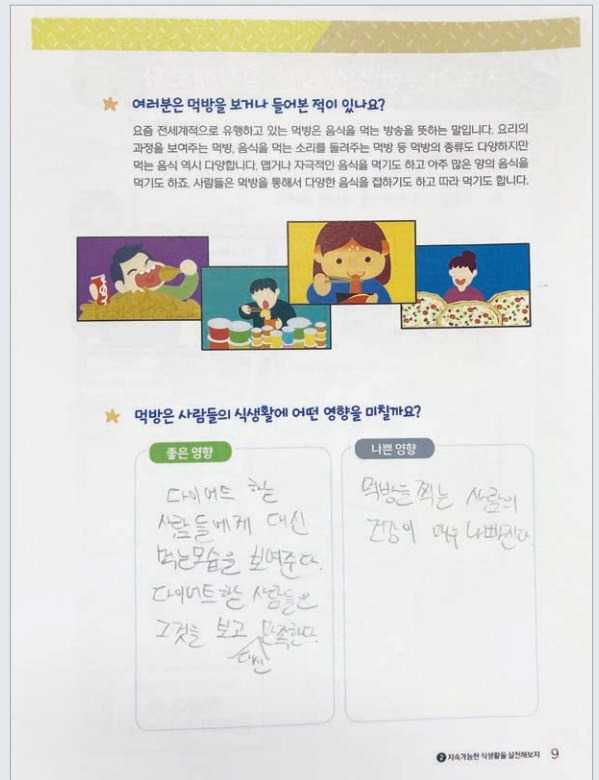 여러분은 먹방을 보거나 들어본 적이 있나요?
요즘 전세계적으로 유행하고 있는 먹방은 음식을 먹는 방송을 뜻하는 말입니다. 요리의
과정을 보여주는 먹방, 음식을 먹는 소리를 들려주는 먹방 등 먹방의 종류도 다양하지만
먹는 음식 역시 다양합니다. 맵거나 자극적인 음식을 먹기도 하고 아주 많은 양의 음식을
먹기도 하죠. 사람들은 먹방을 통해서 다양한 음식을 접하기도 하고 따라 먹기도 합니다.
먹방은 사람들의 식생활에 어떤 영향을 미칠까요?
좋은 영향
다이어트 하는
사람들에게 대신
먹는모습을 보여준다.
다이어트하는 사람들은
그것을 보고 만족한다.
대신
나쁜 영향
먹방을 찍는 사람의
건강이 매우 나빠진다.
2 지속가능한 식생활을 실천해보자 9